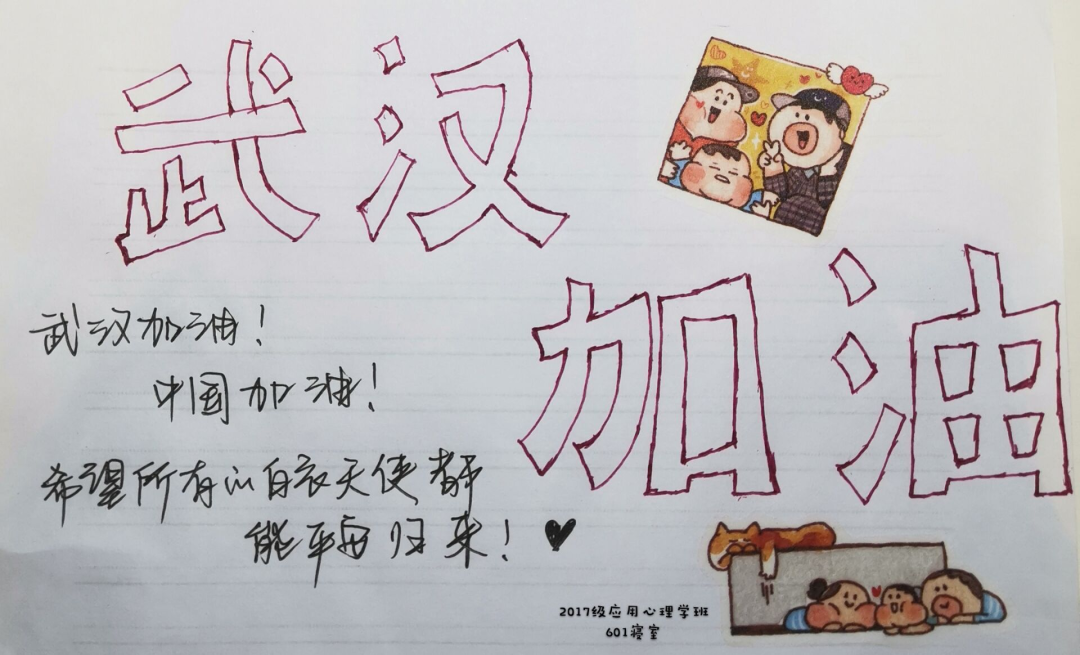 武汉
加油
武汉加油！
中国加油！
希望所有的白衣天使都
能平安归来！
2017级应用心理学班
601寝室